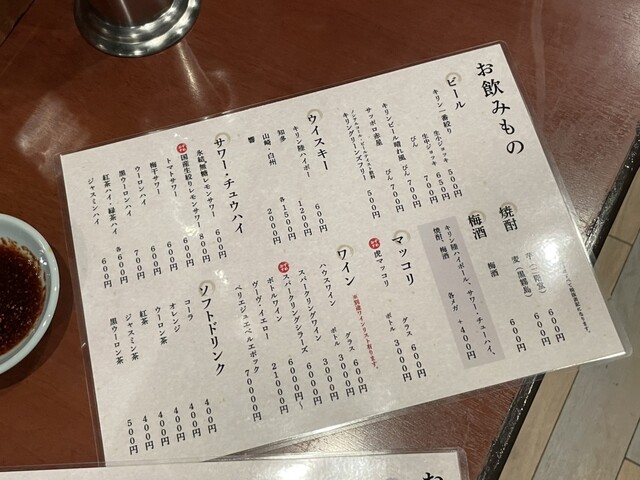 お飲みもの
ビール
キリン一番絞り
生小ジョッキ 500円
生中ジョッキ 650円
びん 700円
キリンビール晴れ風 びん 700円
サッポロ赤星 びん 700円
キリングリーンズフリー 500円
ウイスキー
キリン陸ハイボール 600円
知多 1200円
山崎・白州 各1500円
響 2000円
サワー・チュウハイ
氷結無糖レモンサワー 600円
国産生絞りレモンサワー 800円
トマトサワー 600円
梅干サワー 600円
ウーロンハイ 600円
黒ウーロンハイ 700円
紅茶ハイ・緑茶ハイ 各600円
ジャスミンハイ 600円
焼酎
600円
麦 600円
梅酒
梅酒 600円
キリン陸ハイボール、サワー、チューハイ、
焼酎、梅酒 各メガ +400円
マッコリ
虎マッコリ グラス 600円
ボトル 3000円
ワイン
※別途ワインリスト有ります。
ハウスワイン グラス 600円
ボトル 3000円
スパークリングワイン 3000円
スパークリングシラーズ 6000円
ボトルワイン 6000円～
ヴーヴ・イエロー 21000円
ベリエジュエベルエポック 70000円
ソフトドリンク
コーラ 400円
オレンジ 400円
ウーロン茶 400円
紅茶 400円
ジャスミン茶 400円
黒ウーロン茶 500円